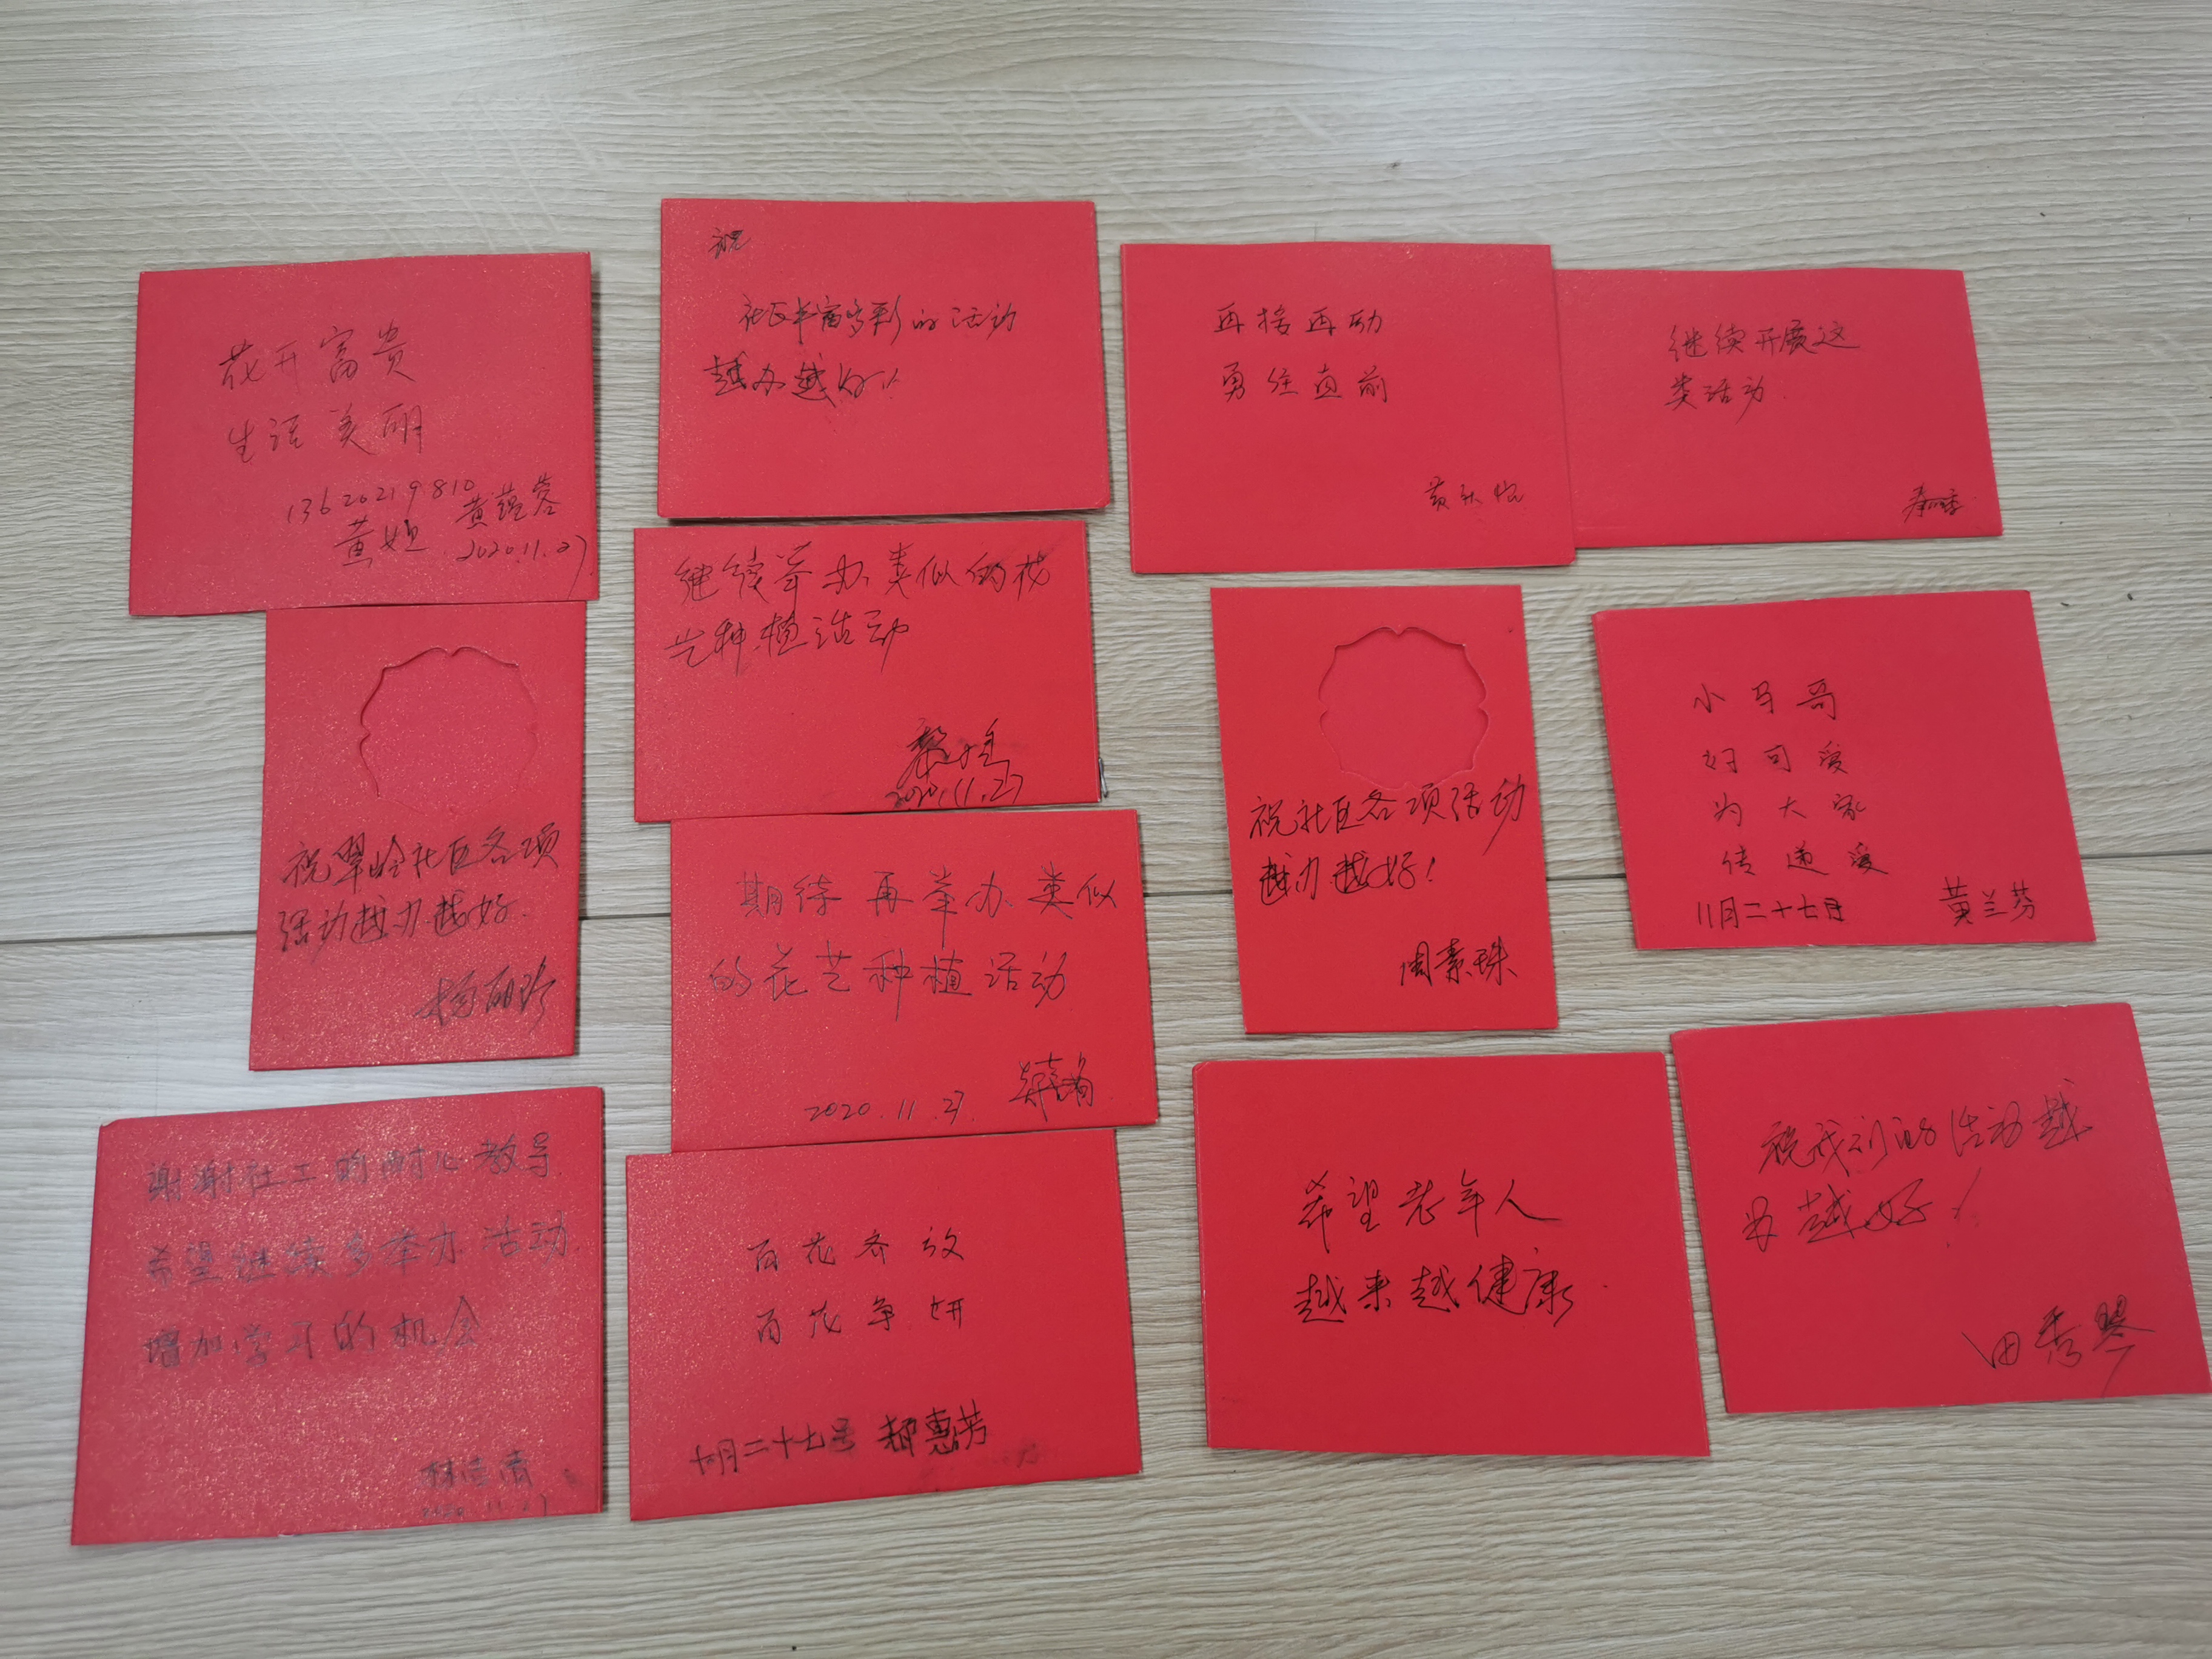 花开富贵
生活美丽
13620219810
黄姐 黄蕴蓉
2020.11.27
祝
社区丰富多彩的活动
越办越好!
再接再励
勇往直前
继续开展这
类活动
继续举办类似的花
艺种植活动
2020.11.27
祝翠岭社区各项
活动越办越好.
杨丽珍
期待再举办类似
的花艺种植活动
2020.11.27.
祝社区各项活动
越办越好!
周素珠
小马哥
好可爱
为大家
传递爱
11月二十七号 黄兰芬
谢谢社工的耐心教导
希望继续多举办活动.
增加学习的机会
2020.11.27
百花齐放
百花争妍
十月二十七号 郝惠芳
希望老年人
越来越健康.
祝我们的活动越
办越好!
田秀琴